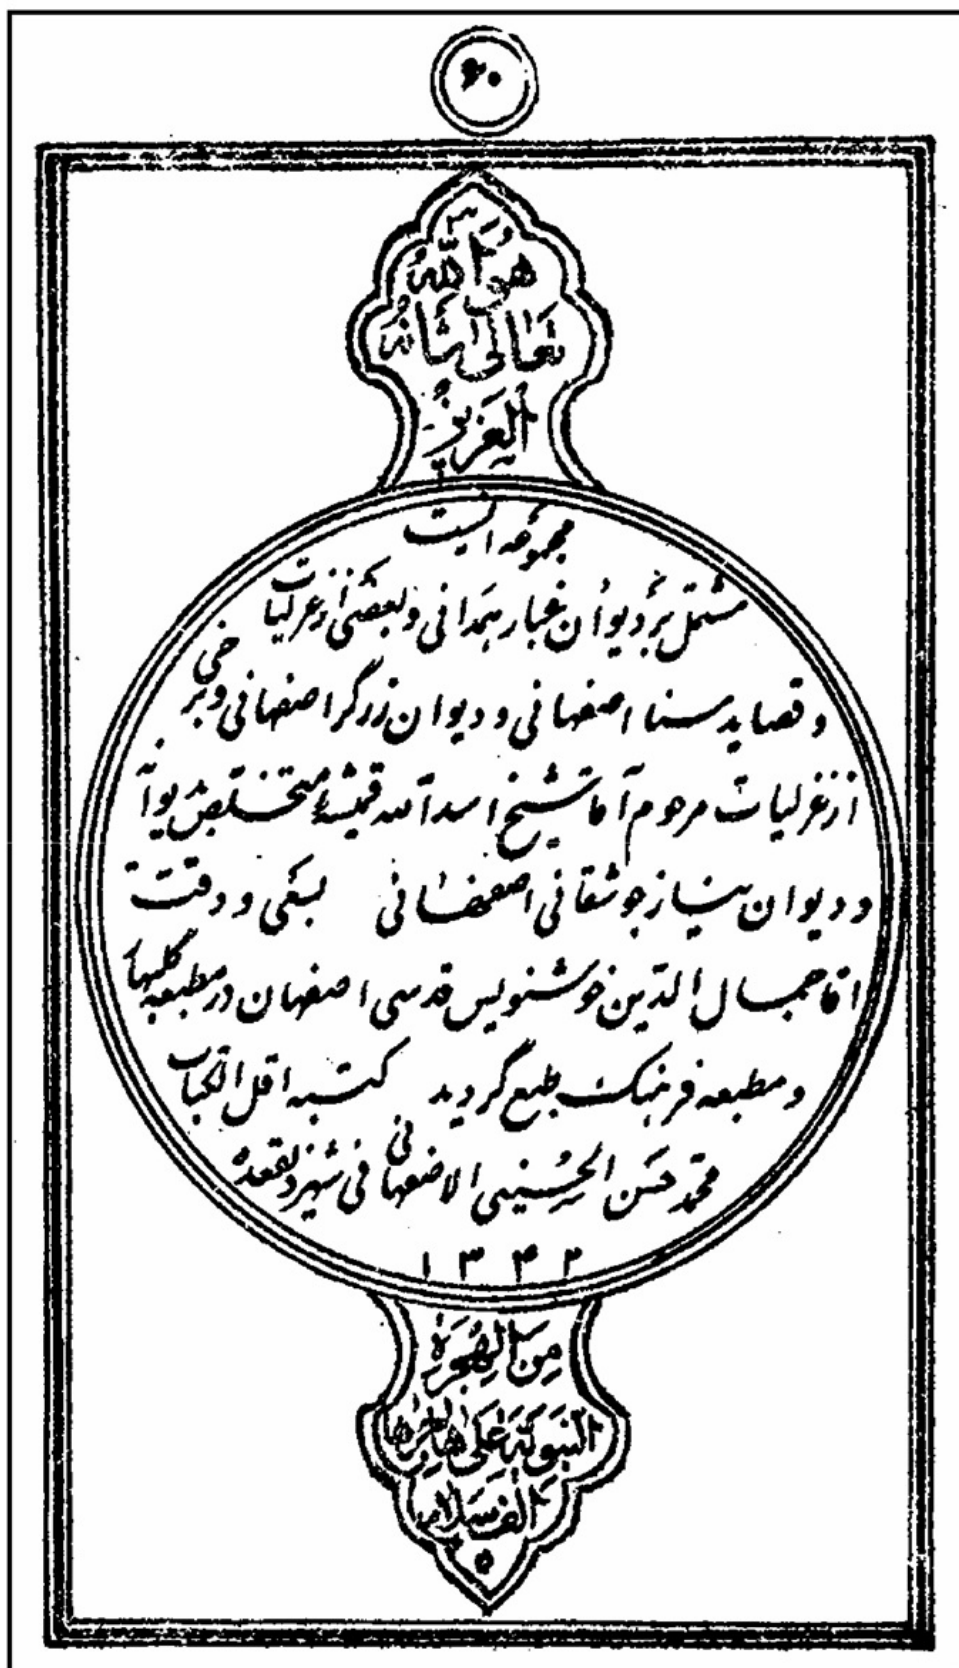 ۶۰
هُوَ اللّٰهُ
تَعَالیٰ شَانُهُ
العَزیزُ
مجموعه ایست
مشتمل بر دیوان غبار همدانی و بعضی از غزلیات
و قصاید سنا اصفهانی و دیوان زرگر اصفهانی و برخی
از غزلیات مرحوم آقا شیخ اسدالله قمشهٔ متخلص
و دیوان نیاز جوشقانی اصفهانی بسعی و دقت
اقا جمال الدین خوشنویس قدسی اصفهان در مطبعه گلبهار
و مطبعه فرهنک طبع گردید کتبه اقل الکتاب
محمد حسن الحسینی الاصفهانی فی شهر ذیقعده
۱۳۴۲
مِنَ الهِجرَةِ
النبویَّه عَلیٰ هاجرها
الف سَلام